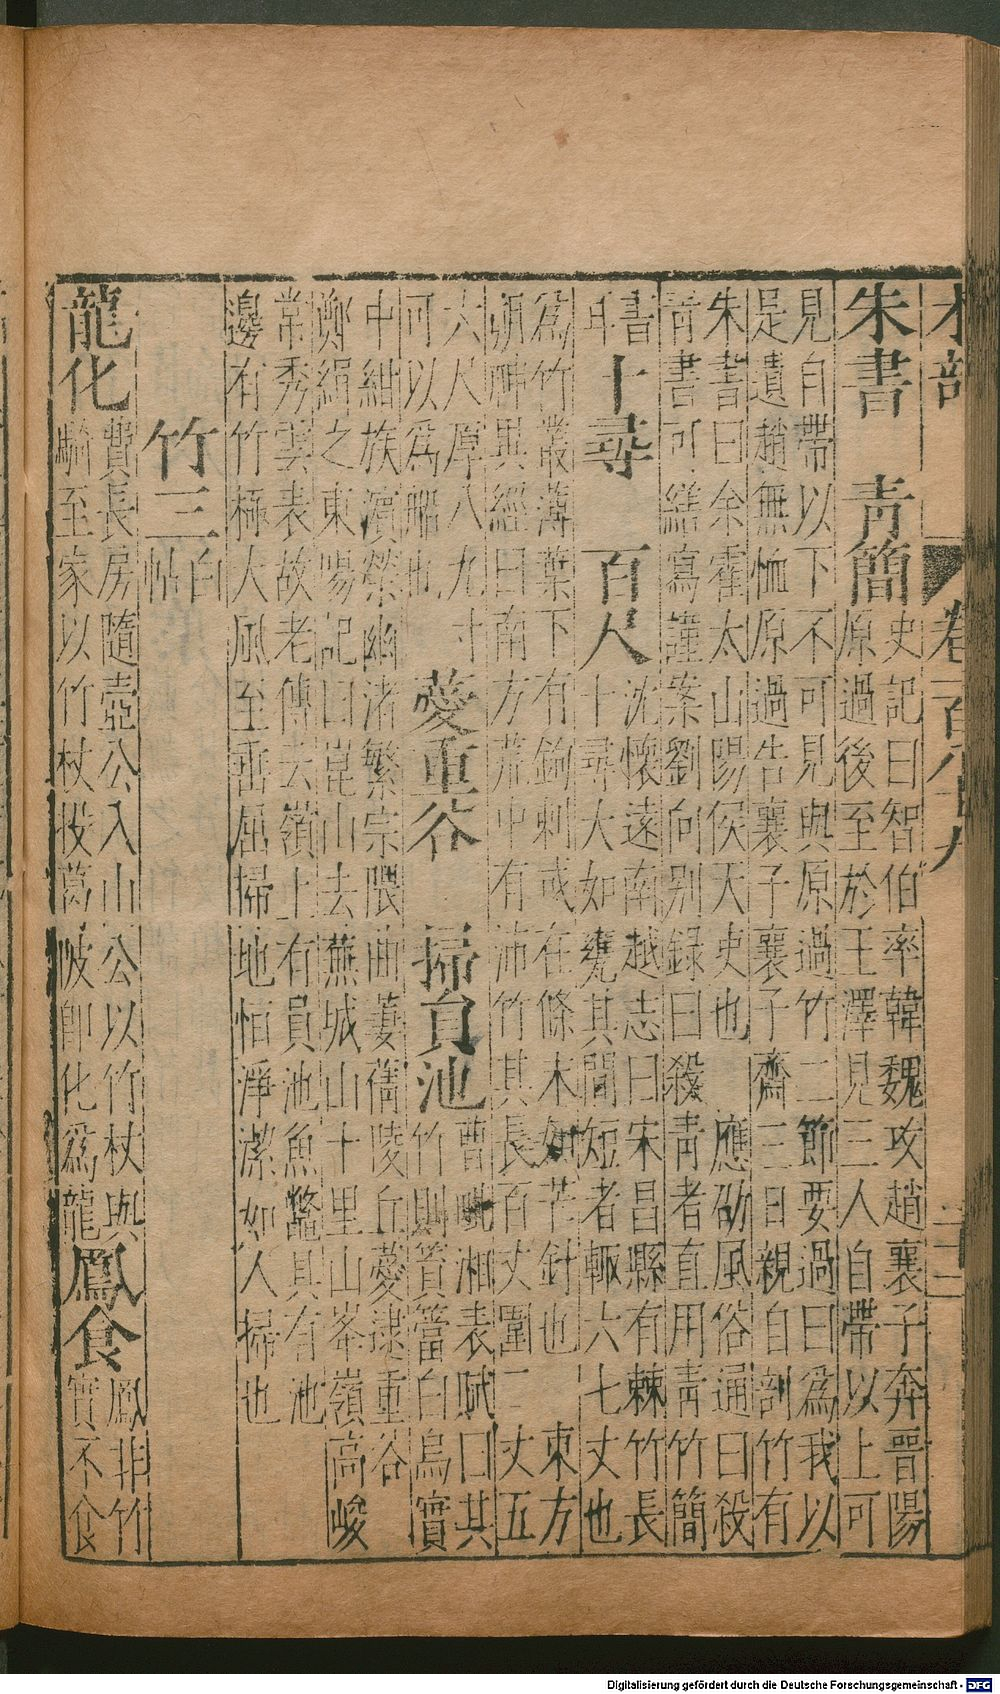 木部　卷一百八十九　二十二
朱書　青簡
史記曰智伯率韓魏攻趙襄子奔晉陽
原過後至於王澤見三人自帶以上可
見自帶以下不可見與原過竹二節要過曰爲我以
是遺趙無恤原過告襄子襄子齋三日親自剖竹有
朱書曰余霍太山陽侯天史也　應劭風俗通曰殺
青書可繕寫謹案劉向別錄曰殺青者直用青竹簡
書
耳　十尋　百丈
沈懷遠南越志曰宋昌縣有棘竹長
十尋大如甕其間短者輙六七丈也
爲竹叢薄葉下有鉤刺或在條末如芒針也　東方
朔神異經曰南方荒中有沛竹其長百丈圍二丈五
六尺厚八九寸
可以爲船也　薆重谷　掃員池
曹毗湘表賦曰其
竹則篔簹白烏實
中紺族濱榮幽渚繁宗隈曲萋蒨陵丘薆逮重谷
鄭緝之東陽記曰崑山去蕪城山十里山峯嶺高峻
常秀雲表故老傳去嶺上有員池魚鱉具有池
邊有竹極人風至垂屈掃地恒淨潔如人掃也
竹三
白
帖
龍化
費長房隨壺公入山公以竹杖與
騎至家以竹杖投葛陂即化爲龍
鳳食
鳳非竹
實不食
Digitalisierung gefördert durch die Deutsche Forschungsgemeinschaft - DFG